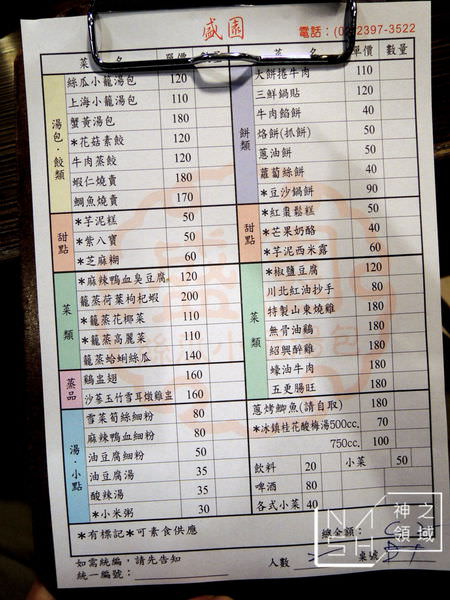 盛園
電話：(02)2397-3522
菜 名 單價 數量
菜 名 單價 數量
湯包．餃類
絲瓜小籠湯包 120
上海小籠湯包 110
蟹黃湯包 180
*花菇素餃 120
牛肉蒸餃 120
蝦仁燒賣 180
鯛魚燒賣 170
甜點
*芋泥糕 50
*紫八寶 50
*芝麻糊 60
菜類
*麻辣鴨血臭豆腐 120
籠蒸荷葉枸杞蝦 200
*籠蒸花椰菜 110
*籠蒸高麗菜 110
籠蒸蛤蜊絲瓜 140
蒸品
鷄盅翅 160
沙蔘玉竹雪耳燉雞盅 160
湯．小點
雪菜筍絲細粉 80
麻辣鴨血細粉 80
油豆腐細粉 50
油豆腐湯 35
酸辣湯 35
*小米粥 30
餅類
大餅捲牛肉 110
三鮮鍋貼 120
牛肉餡餅 40
烙餅(抓餅) 50
蔥油餅 50
蘿蔔絲餅 40
*豆沙鍋餅 90
甜點
*紅棗鬆糕 50
*芒果奶酪 40
*芋泥西米露 60
菜類
*椒鹽豆腐 120
川北紅油抄手 80
特製山東燒雞 180
無骨油鷄 180
紹興醉雞 180
蠔油牛肉 180
五更腸旺 180
蔥烤鯽魚(請自取) 180
*冰鎮桂花酸梅湯500cc. 70
750cc. 100
飲料 20 小菜 50
啤酒 80
各式小菜 40
*有標記*可素食供應
總金額：
如需統編，請先告知
統一編號：
人數
桌號
神之領域